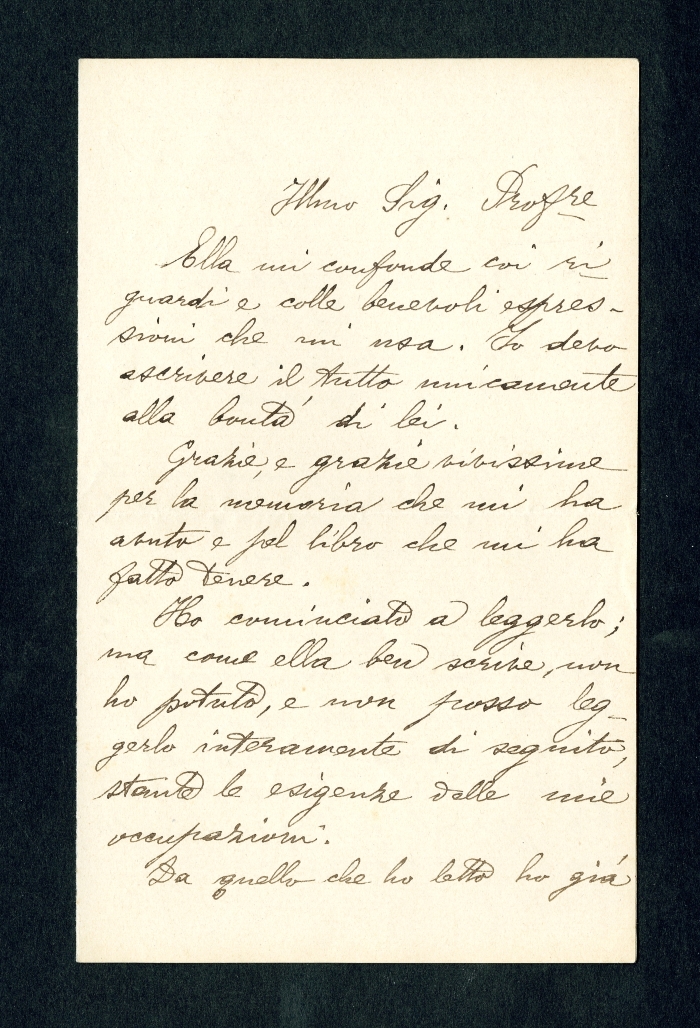 Illmo Sig. Profre
Ella mi confonde coi ri-
guardi e colle benevoli espres-
sioni che mi usa. Io devo
ascrivere il tutto unicamente
alla bontà di lei.
Grazie, e grazie vivissime
per la memoria che mi ha
avuto e pel libro che mi ha
fatto tenere.
Ho cominciato a leggerlo;
ma come ella ben scrive, non
ho potuto, e non posso leg-
gerlo interamente di seguito,
stante le esigenze delle mie
occupazioni.
Da quello che ho letto ho già